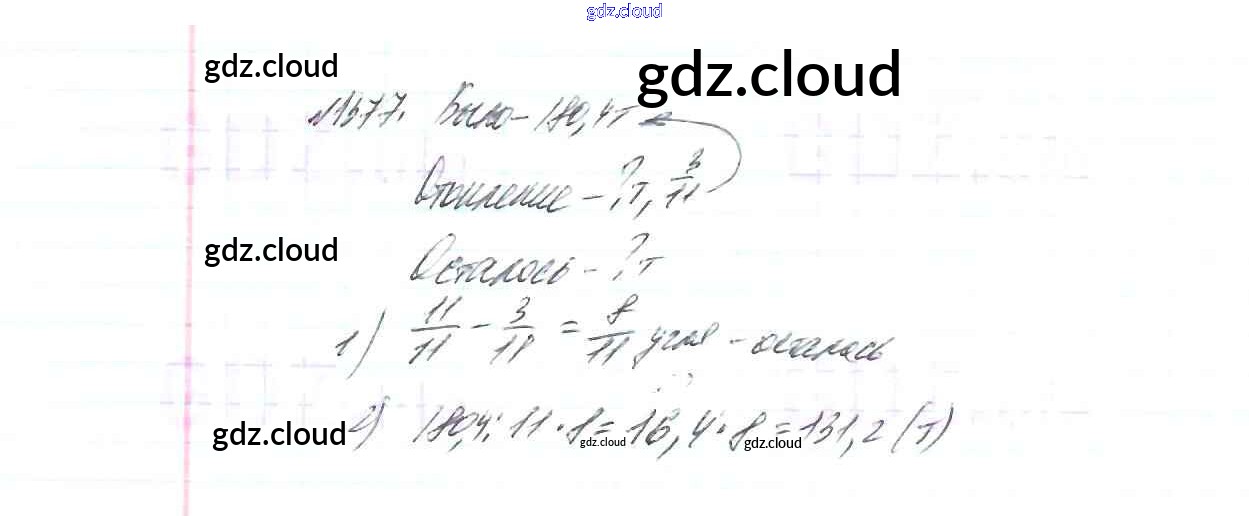 gdz.cloud
gdz.cloud
gdz.cloud
№1377. Было - 180,4т
Отопление - ?т, 3/11
gdz.cloud
Осталось - ?т
1) 11/11 - 3/11 = 8/11 угля - осталось
gdz.cloud
2) 180,4 : 11 · 8 = 16,4 · 8 = 131,2 (т)
gdz.cloud
gdz.cloud